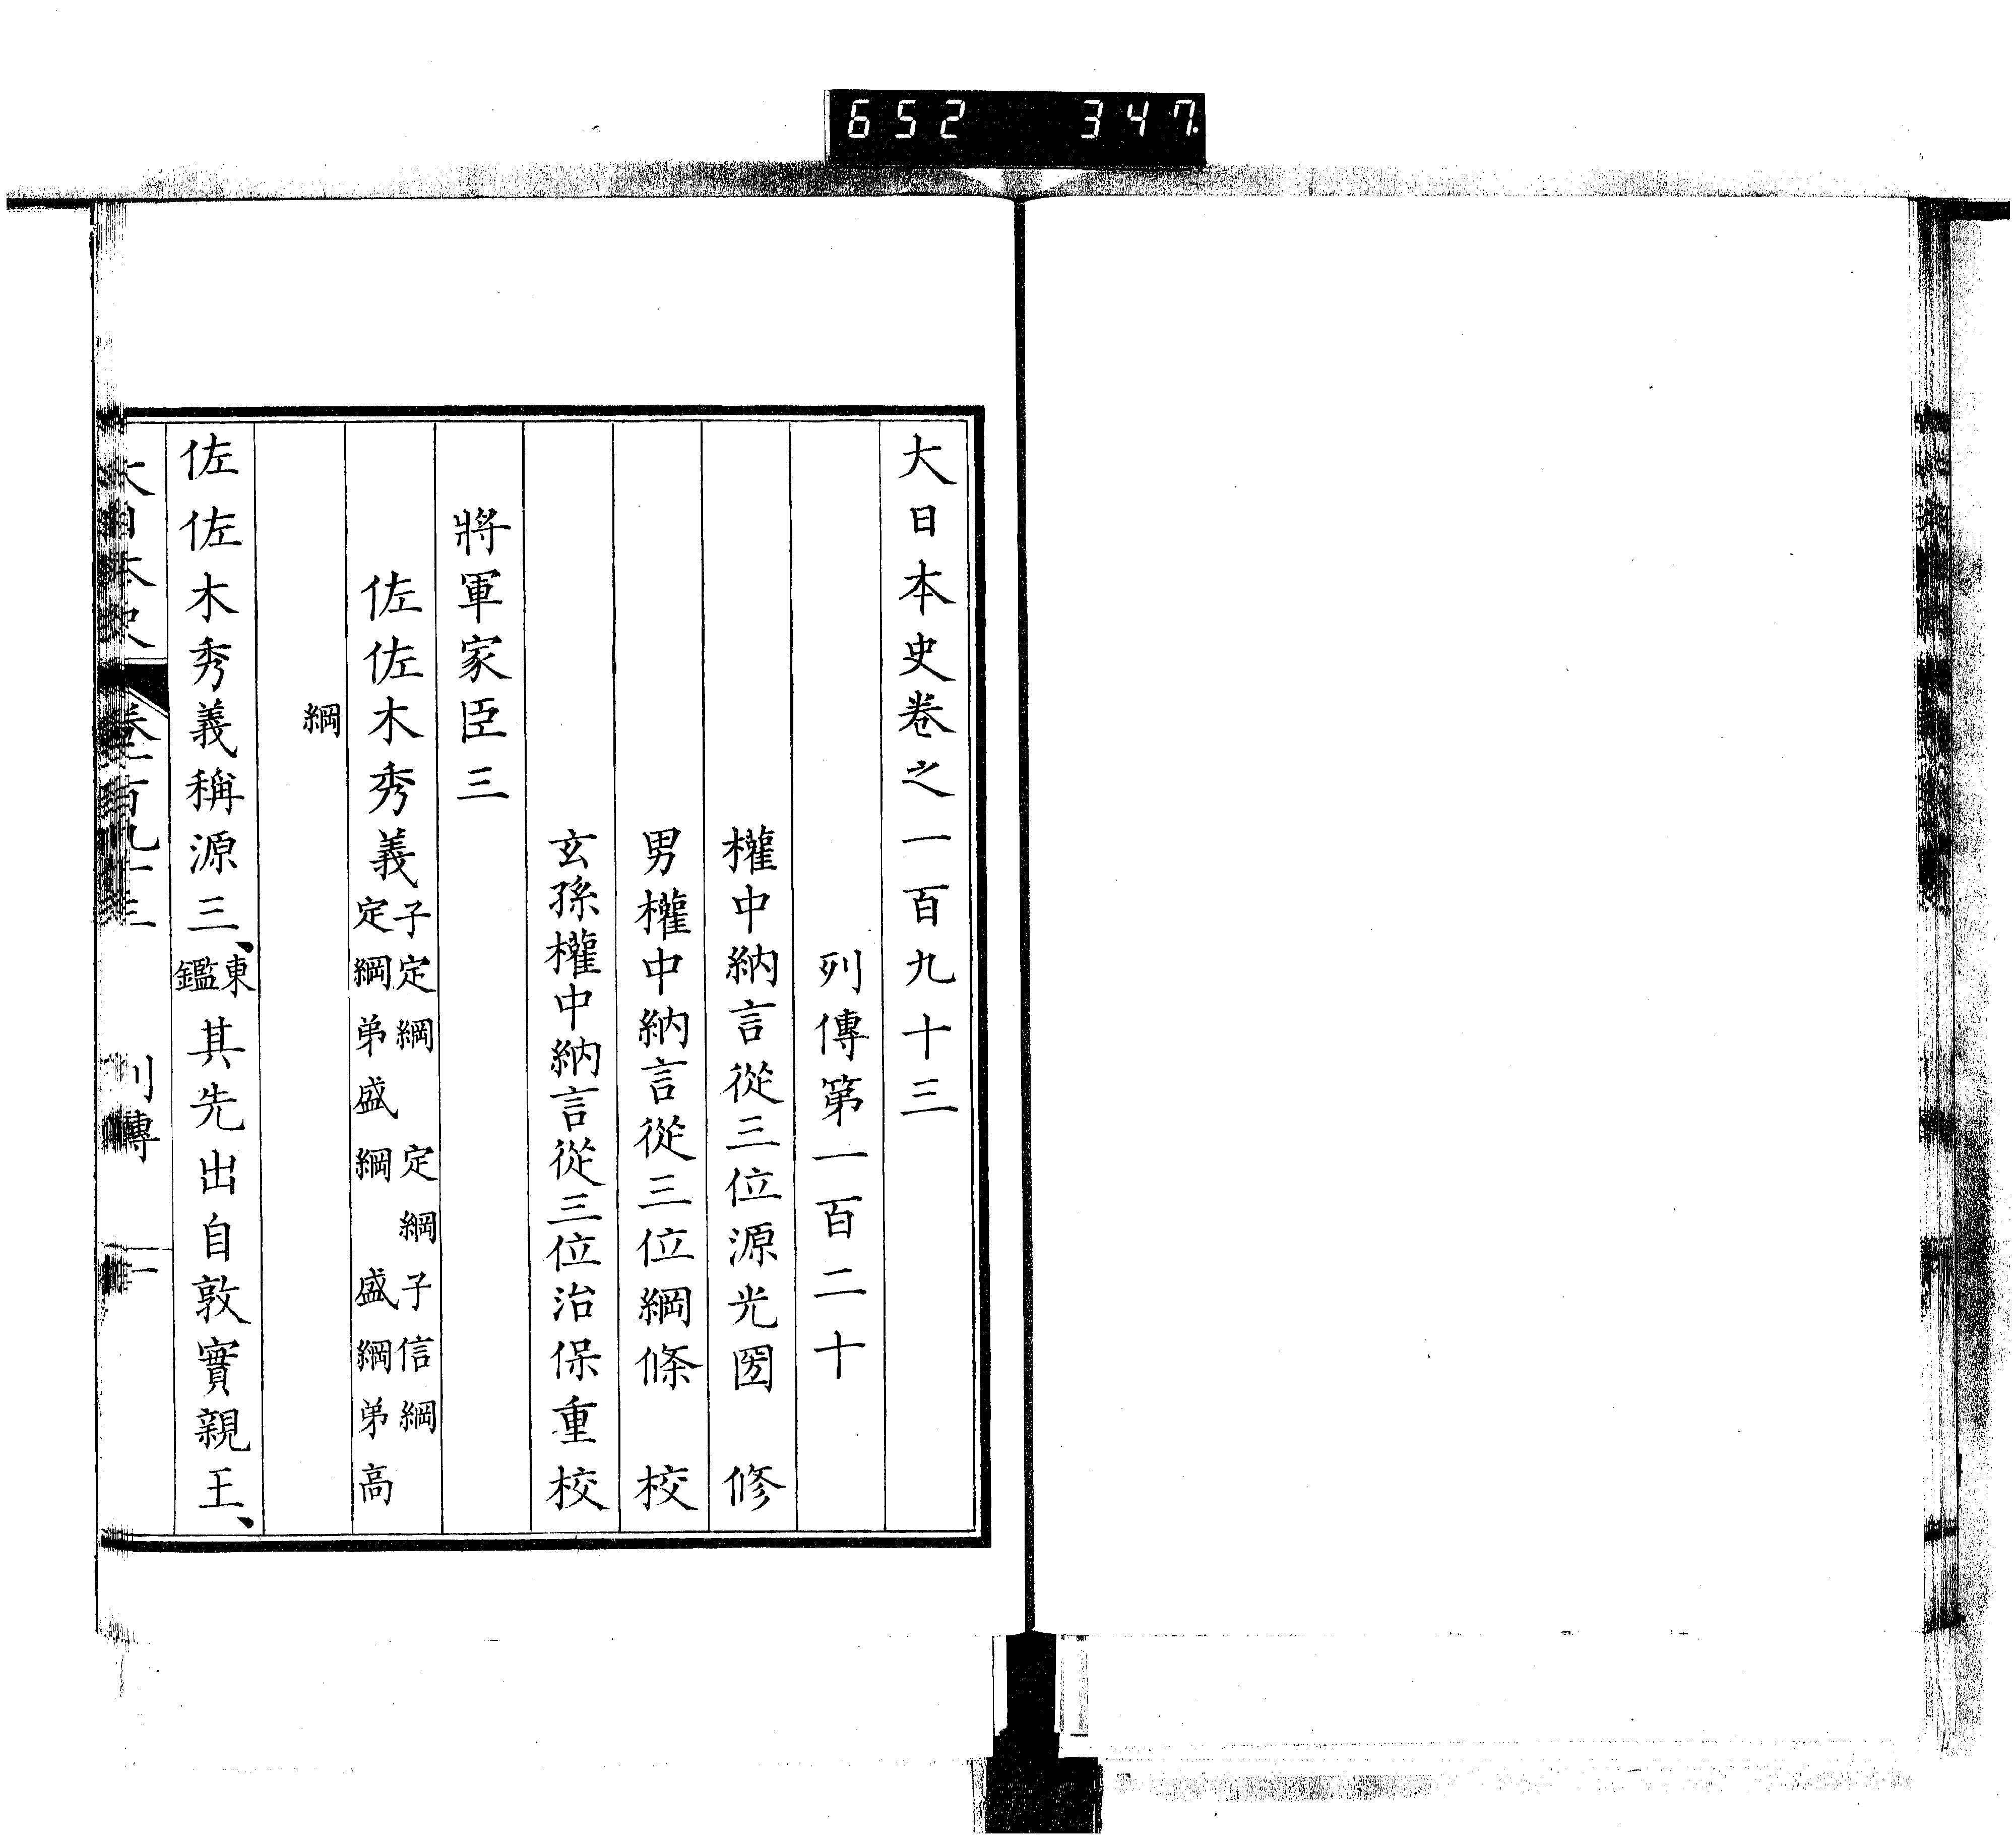 652 347.
大日本史卷之一百九十三
列傳第一百二十
權中納言從三位源光圀 修
男權中納言從三位綱條 校
玄孫權中納言從三位治保重校
將軍家臣三
佐佐木秀義
子定綱 定綱子信綱
定綱弟盛綱 盛綱弟高
綱
佐佐木秀義稱源三、
東
鑑
其先出自敦實親王、
大日本史 卷一百九十三 列傳 一